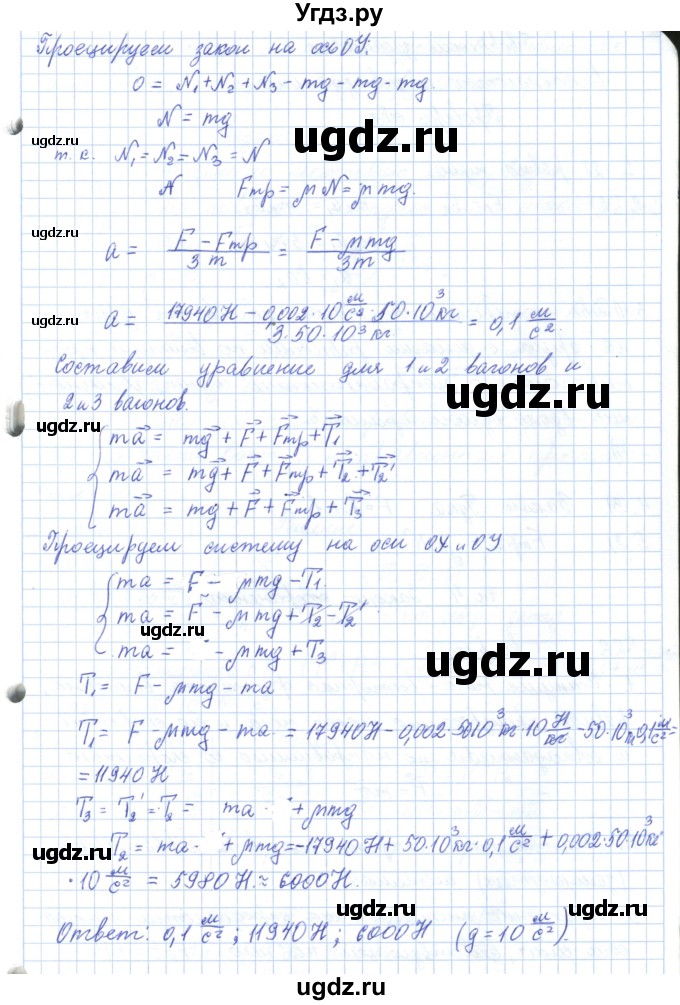 Угдз.ру
Проецируем закон на ось OУ:
0 = N₁ + N₂ + N₃ - mg - mg - mg.
N = mg
ugdz.ru
ugdz.ru
т.к. N₁ = N₂ = N₃ = N
Fтр = μN = μmg.
ugdz.ru
a = (F - Fтр)/(3m) = (F - μmg)/(3m)
a = (17940Н - 0,002·10 м/с²·50·10³кг)/(3·50·10³кг) = 0,1 м/с².
Составим уравнение для 1 и 2 вагонов и
ugdz.ru
2 и 3 вагонов.
ugdz.ru
ma = mg + F + Fтр + T₁
ma = mg + F + Fтр + T₂ + T₂'
ma = mg + F + Fтр + T₃
Проецируем систему на оси OX и OУ
ma = F - μmg - T₁.
ma = F - μmg + T₂ - T₂'
ugdz.ru
ma = - μmg + T₃
ugdz.ru
T₁ = F - μmg - ma
T₁ = F - μmg - ma = 17940Н - 0,002·50·10³кг·10 Н/кг - 50·10³·0,1 м/с² =
= 11940Н
T₃ = T₂' = T₂ = ma · + μmg
ugdz.ru
T₂ = ma · + μmg = -17940Н + 50·10³кг·0,1 м/с² + 0,002·50·10³кг
·10 м/с² = 5980Н. ≈ 6000Н.
ugdz.ru
Ответ: 0,1 м/с²; 11940Н; 6000Н (g = 10 м/с²).
ugdz.ru